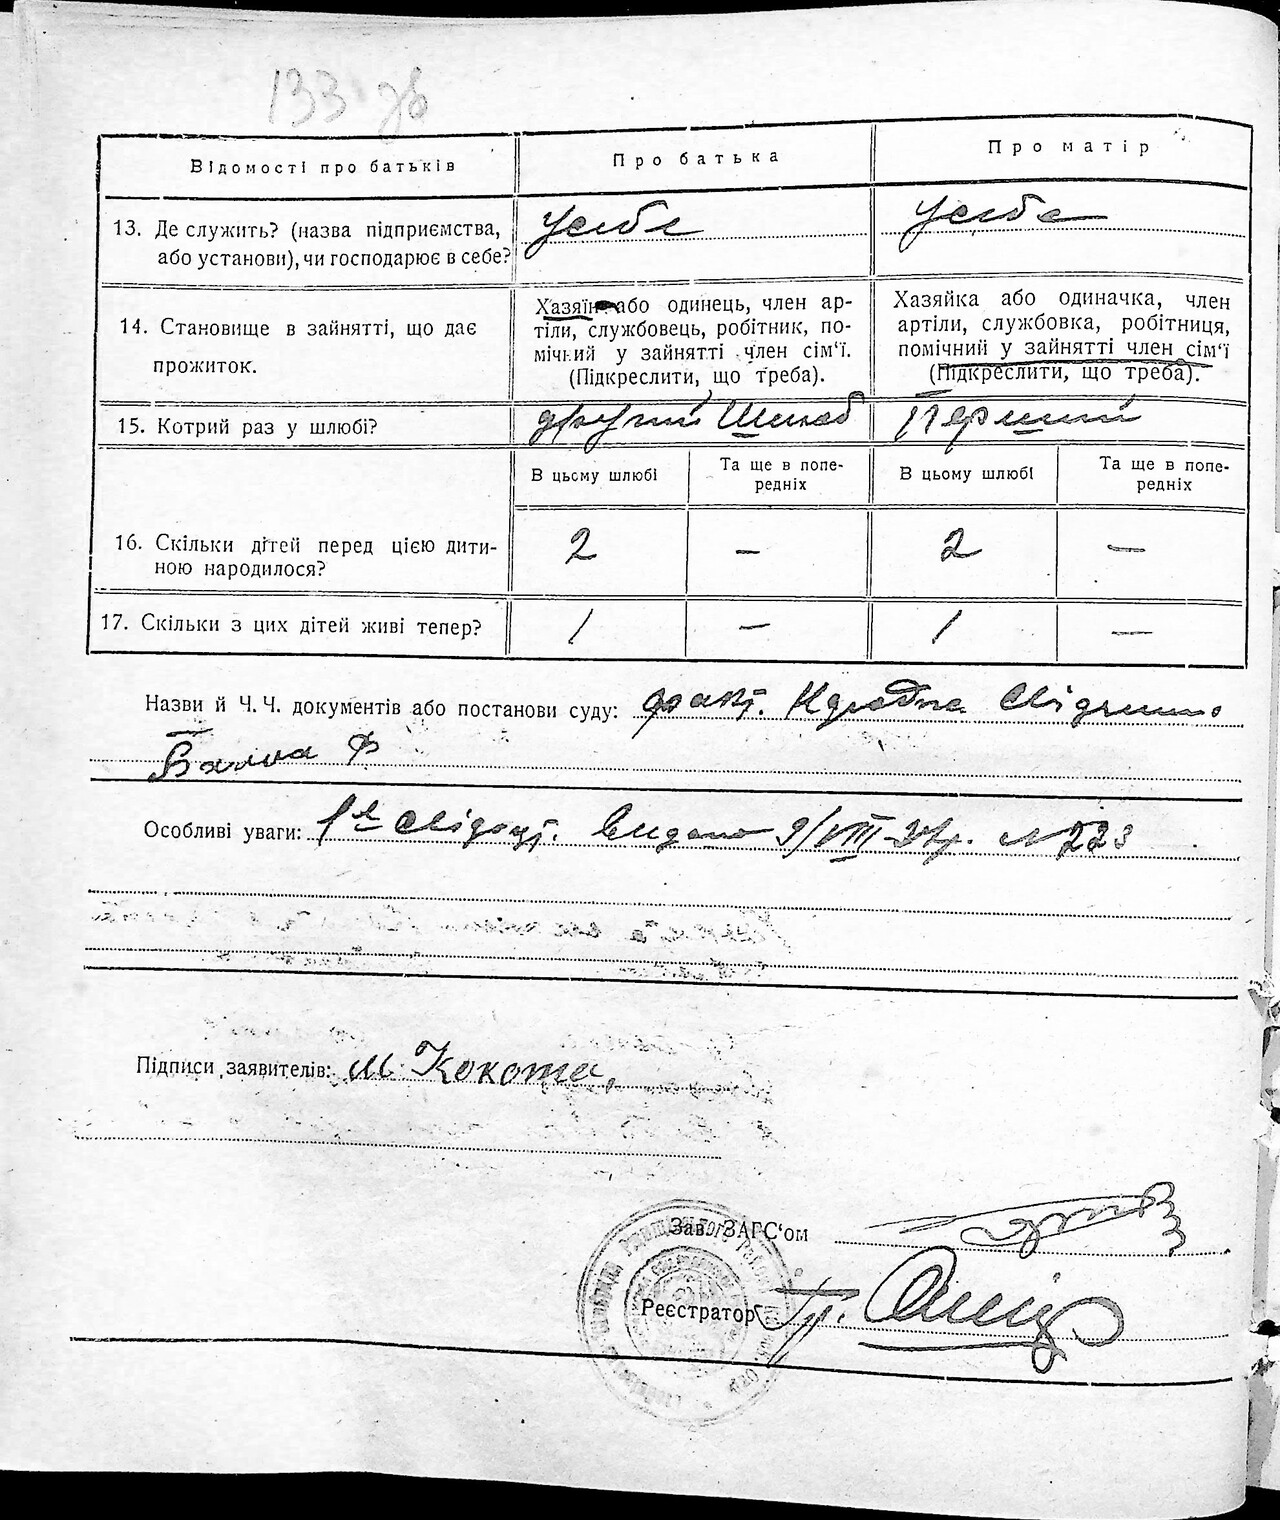 133 зв
Відомості про батьків
Про батька
Про матір
13. Де служить? (назва підприємства,
або установи), чи господарює в себе?
У себе
У себе
14. Становище в зайнятті, що дає
прожиток.
Хазяїн або одинець, член ар-
тіли, службовець, робітник, по-
мічний у зайнятті член сім'ї.
(Підкреслити, що треба).
Хазяйка або одиначка, член
артіли, службовка, робітниця,
помічний у зайнятті член сім'ї
(Підкреслити, що треба).
15. Котрий раз у шлюбі?
другий шлюб
Перший
В цьому шлюбі
Та ще в попе-
редніх
В цьому шлюбі
Та ще в попе-
редніх
16. Скільки дітей перед цією дити-
ною народилося?
2 — 2 —
17. Скільки з цих дітей живі тепер?
1 — 1 —
Назви й Ч. Ч. документів або постанови суду: факт.
Особливі уваги: Видано 9/VIII N 223
Підписи заявителів: М Кокота
Зав. ЗАГС'ом
Реєстратор